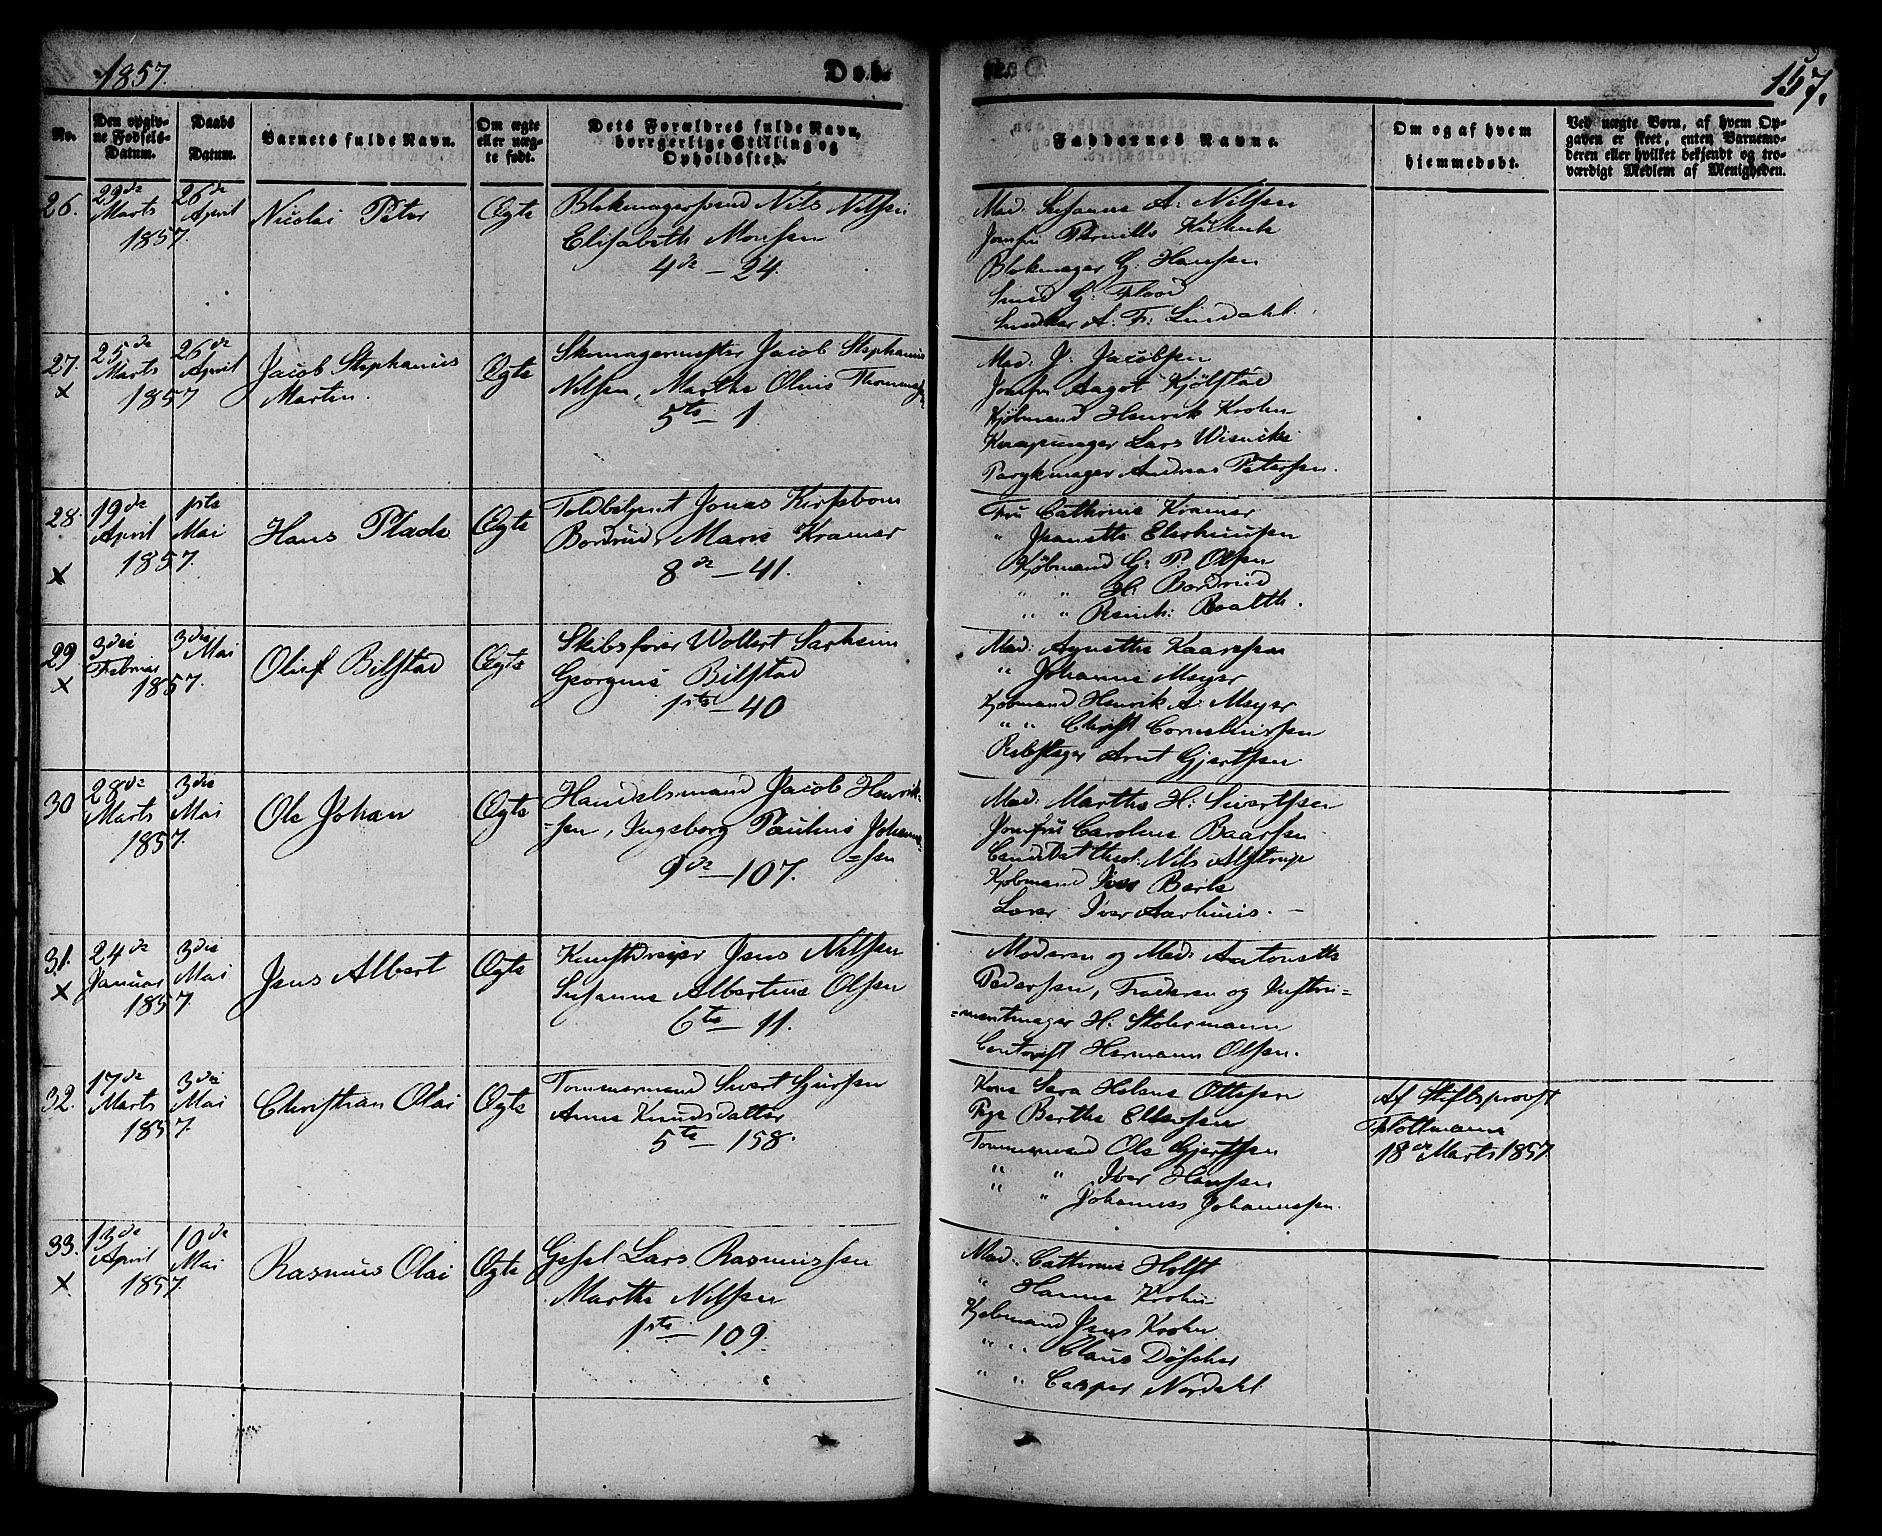 1857.
Døb.
157.
No.
Den opgiv-
ne Fødsels-
Datum.
Daabs
Datum.
Barnets fulde Navn.
Om ægte
eller uæg-
te født.
Dets Forældres fulde Navn,
borrgerlige Stilling og
Opholdssted.
Faddernes Navne.
Om og af hvem
hjemmedøbt.
Ved uægte Børn, af hvem Op-
gaven er skeet, enten Barnemo-
deren eller hvilket bekjendt og tro-
værdigt Medlem af Menigheden.
26.
29de
Marts
1857
26de
April
Nicolai Peter
Ægte
Blokmagersvend Nils Nilsen
Elisabeth Monsen
4de – 24.
Mad. Susanne A. Nilsen
Jomfru Pernille
Blokmager G. Hansen
Smed G. Flood
Snedker A. F. Lindahl.
27.
x
25de
Marts
1857
26de
April
Jacob Stephanus
Martin.
Ægte
Skomagermester Jacob Stephanus
Nilsen, Marthe Oline Thommesen
5te – 1.
Mad. J. Jacobsen
Jomfru Aagot Kjølstad
Kjøbmand Henrik Krohn
Lars
Parykmager Andreas Petersen.
28.
x
19de
April
1857.
1ste
Mai
Hans Plade
Ægte
Toldbetjent Jonas Kirsebom
Bordrud, Marie Kramer
8de – 41.
Fru Cathrine Kramer
" Jeanette Elerhuusen
Kjøbmand G. P. Olsen
" " H. Bordrud
" " Reinh: Boalth.
29
x
3die
Februar
1857.
3die
Mai
Oluf Bilstad
Ægte
Skibsfører Wollert
Georgine Bilstad
1ste – 40
Mad. Agnethe Kaarsen
" Johanne Meyer
Kjøbmand Henrik A. Meyer
" " Christ Corneliussen
Rebslager Arnt Gjertsen
30
28de
Marts
1857.
3die
Mai
Ole Johan
Ægte
Handelsmand Jacob Henrik-
=sen, Ingeborg Pauline Johannes-
=sen
9de – 107.
Mad. Marthe H. Sivertsen
Jomfru Caroline Baarsen
Candidat theol. Nils Alstrup
Kjøbmand Iver Berle
Lærer Iver Aarhuus. –
31.
x
24de
Januar
1857
3die
Mai
Jens Albert
Ægte
Kunstdreier Jens Nilsen
Susanne Albertine Olsen
6te – 11.
Moderen og Mad. Antonette
Pedersen, Faderen og Instru=
=mentmager H. Stohrmann
Contorist Hermann Olsen.
32.
17de
Marts
1857.
3die
Mai
Christian Olai
Ægte
Tømmermand Sivert
Anne Knudsdatter
5te – 158.
Kone Sara Helene Ottesen
Pige Berthe Ellersen
Tømmermand Ole Gjertsen
" " Iver Hansen
" " Johannes Johannessen.
Af Stiftsprovst
Flottmann
18de Marts 1857.
33.
x
13de
April
1857.
10de
Mai
Rasmus Olai
Ægte
Lars Rasmussen
Marthe Nilsen
1ste – 109.
Mad. Cathrine Holst
" Hanne Krohn
Kjøbmand Jens Krohn
" " Claus Døscher
" " Casper Nordahl.